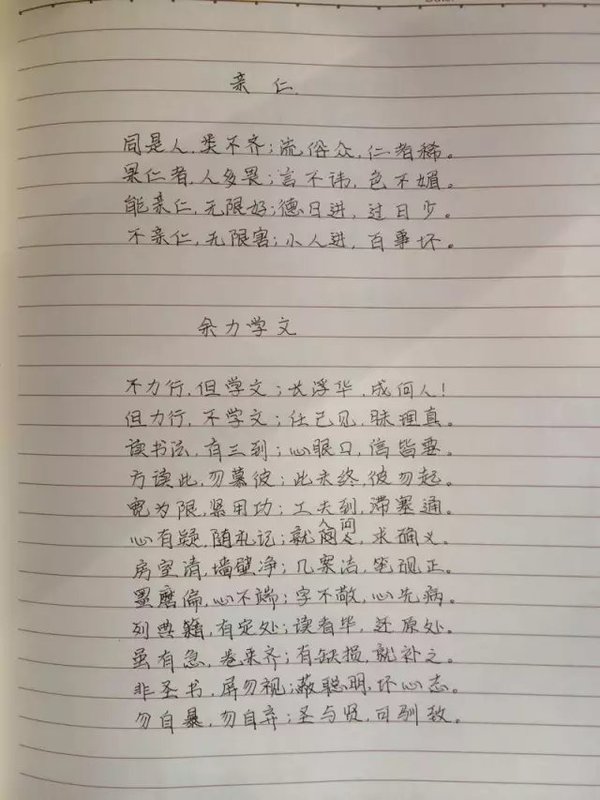 亲仁
同是人,类不齐;流俗众,仁者稀。
果仁者,人多畏;言不讳,色不媚。
能亲仁,无限好;德日进,过日少。
不亲仁,无限害;小人进,百事坏。
余力学文
不力行,但学文;长浮华,成何人!
但力行,不学文;任己见,昧理真。
读书法,有三到;心眼口,信皆要。
方读此,勿慕彼;此未终,彼勿起。
宽为限,紧用功;工夫到,滞塞通。
心有疑,随札记;就人问,求确义。
房室清,墙壁净;几案洁,笔砚正。
墨磨偏,心不端;字不敬,心先病。
列典籍,有定处;读看毕,还原处。
虽有急,卷束齐;有缺损,就补之。
非圣书,屏勿视;蔽聪明,坏心志。
勿自暴,勿自弃;圣与贤,可驯致。